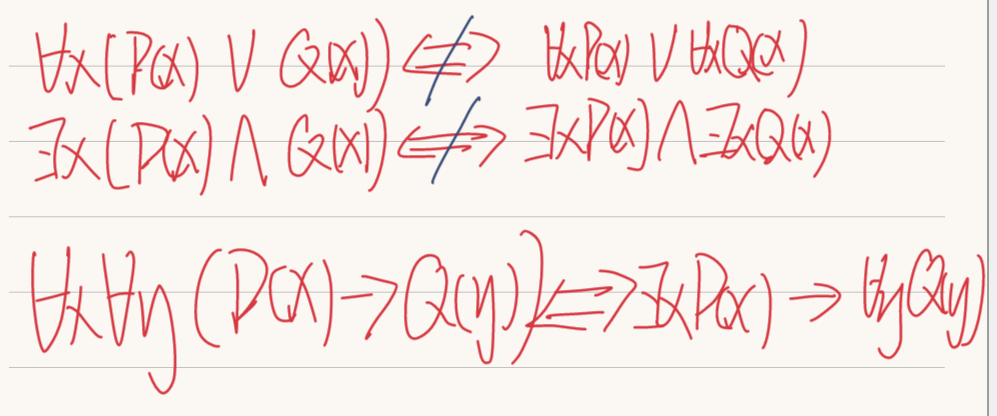 ∀x(P(x) ∨ Q(x)) ⇎ ∀xP(x) ∨ ∀xQ(x)
∃x(P(x) ∧ Q(x)) ⇎ ∃xP(x) ∧ ∃xQ(x)
∀x∀y(P(x)→Q(y)) ⇔ ∃xP(x) → ∀yQ(y)